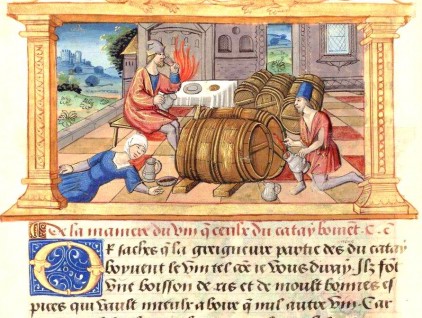 De la maniere du vin q̃ ceulx du catay boiuẽt. C. c
OR saches q̃ la greigneur partie des du catay
boyuent le vin tel cõe ie vous diray. Ilz fõt
vne boisson de ris et de moult bonnes es
pices qui vault mieulx a boire q̃ nul autre vin. Car